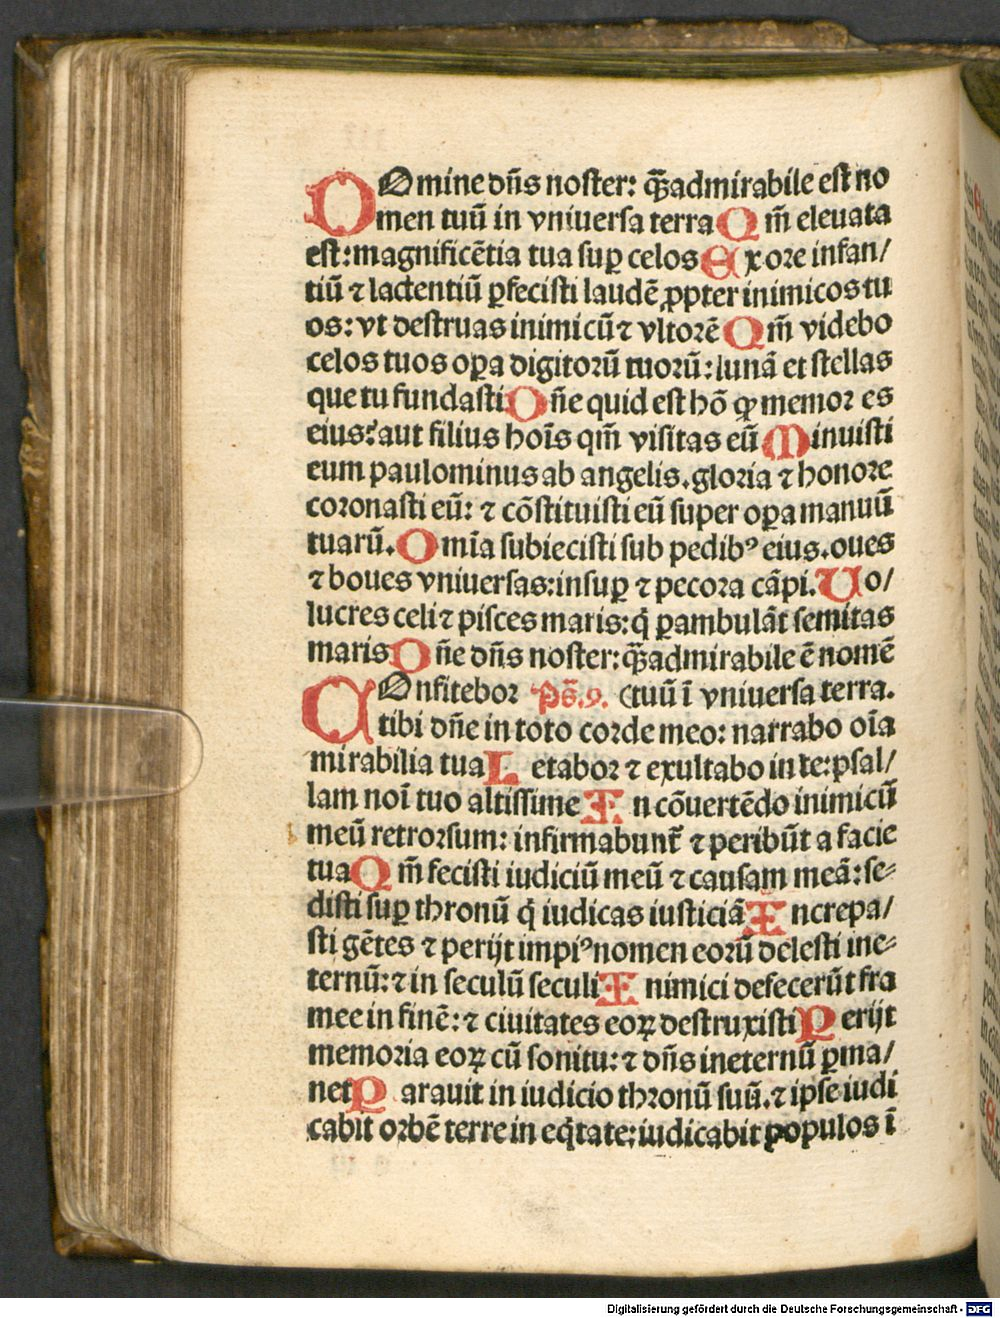 DOmine dñs noster: q̃admirabile est no
men tuũ in vniuersa terra Qm̃ eleuata
est: magnificẽtia tua suꝑ celos Ex ore infan/
tiũ ⁊ lactentiũ ꝑfecisti laudẽ ꝓpter inimicos tu
os: vt destruas inimicũ ⁊ vltorẽ Qm̃ videbo
celos tuos oꝑa digitorũ tuorũ: lunã et stellas
que tu fundasti Dñe quid est hõ ꝙ memor es
eius: aut filius hoĩs qm̃ visitas eũ Minuisti
eum paulominus ab angelis. gloria ⁊ honore
coronasti eũ: ⁊ cõstituisti eũ super oꝑa manuũ
tuarũ. Om̃ia subiecisti sub pedibꝰ eius. oues
⁊ boues vniuersas: insuꝑ ⁊ pecora cãpi. Uo/
lucres celi ⁊ pisces maris: q̇ ꝑambulãt semitas
maris Dñe dñs noster: q̃admirabile ẽ nomẽ
COnfitebor Ps̃. 9. (tuũ ĩ vniuersa terra.
tibi dñe in toto corde meo: narrabo oĩa
mirabilia tua Letabor ⁊ exultabo in te: psal/
lam noĩ tuo altissime In cõuertẽdo inimicũ
meũ retrorsum: infirmabunt̃ ⁊ peribũt a facie
tua Qm̃ fecisti iudiciũ meũ ⁊ causam meã: se⸗
disti suꝑ thronũ q̇ iudicas iusticiã Increpa/
sti gẽtes ⁊ perijt impiꝰ nomen eorũ delesti ine⸗
ternũ: ⁊ in seculũ seculi Inimici defecerũt fra
mee in finẽ: ⁊ ciuitates eoꝝ destruxisti Perijt
memoria eoꝝ cũ sonitu: ⁊ dñs ineternũ ꝑma/
net Parauit in iudicio thronũ suũ. ⁊ ipse iudi
cabit orbẽ terre in eq̇tate: iudicabit populos ĩ
Digitalisierung gefördert durch die Deutsche Forschungsgemeinschaft - DFG